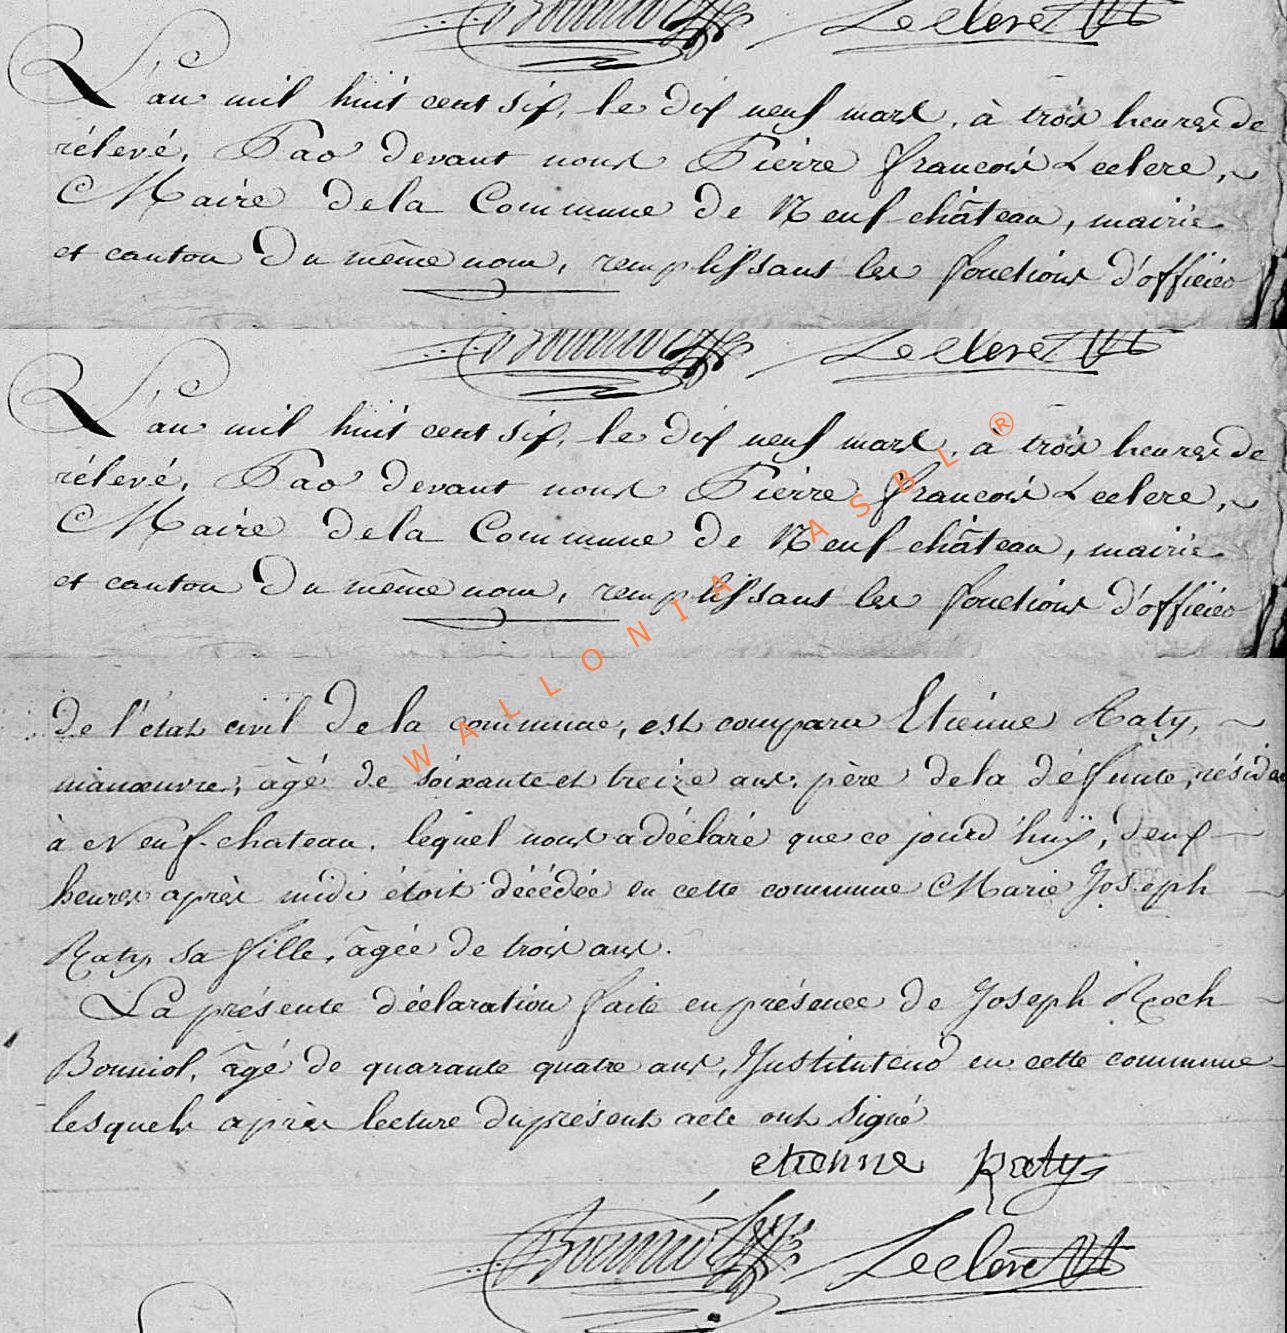 Leclere
L'an mil huit cent six, le dix neuf mars, à trois heures de
rélevé, Par devant nous Pierre françois Leclere,
Maire de la Commune de Neufchâteau, mairie
et canton du même nom, remplissant les fonctions d'officier
Leclere
L'an mil huit cent six, le dix neuf mars, à trois heures de
rélevé, Par devant nous Pierre françois Leclere,
Maire de la Commune de Neufchâteau, mairie
et canton du même nom, remplissant les fonctions d'officier
WALLONIA ASBL ®
de l'état civil de la commune, est comparu Etienne Raty,
manœuvre, âgé de soixante et treize ans, père de la défunte, résidant
à Neuf-chateau, lequel nous a déclaré que ce jourd'huÿ, deux
heures après midi étoit décédée en cette commune Marie Joseph
Raty, sa fille, âgée de trois ans.
La présente déclaration faite en présence de Joseph Roch
Bonniol, âgé de quarante quatre ans, Instituteur en cette commune
lesquels après lecture du présent acte ont signé
etienne Raty
Bonniol Leclere